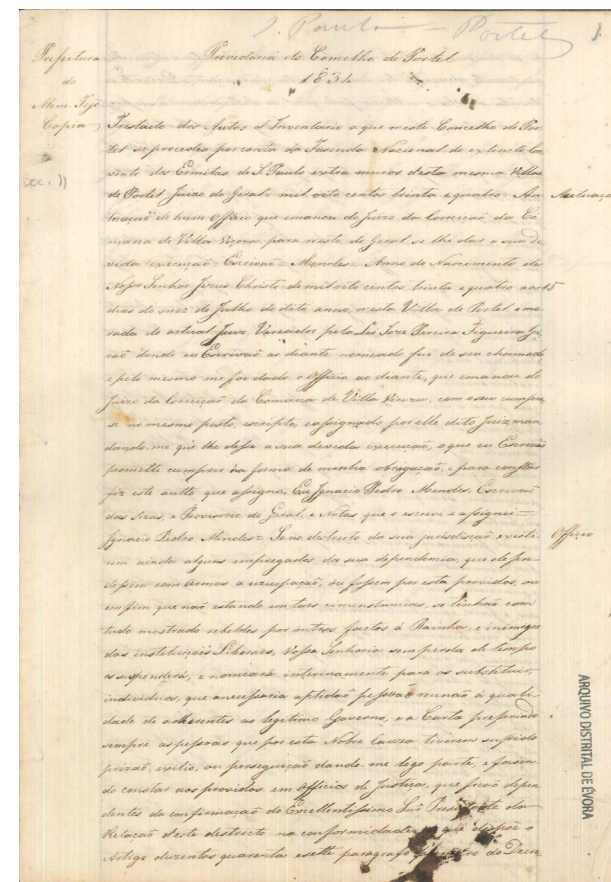 S. Paulo — Portel
1
Prefectura
do
Alem Tejo
Copia
Provedoria do Concelho de Portel
1834
Doc. 11
Treslado dos Autos d'Inventario a que neste Concelho de Por-
tel se procedeo por conta da Fazenda Nacional do extincto Con-
vento dos Ermitas de S. Paulo extra muros desta mesma Villa
de Portel Juizo do Geral = mil oito centos trinta e quatro = Au-
Autuação
tuação de hum Officio que emanou do Juizo da Correição da Co-
marca de Villa Viçosa para neste do Geral se lhe dar a sua de-
vida execução = Escrivão = Mendes = Anno do Nascimento de
Nosso Senhor Jezus Christo de mil oito centos trinta e quatro aos 15
dias do mez de Julho do dito anno, nesta Villa de Portel, e mo-
rada do actual Juiz Vereador pela Lei Joze Pereira Figueira
donde eu Escrivão ao diante nomeado fui de seu chamado
e pelo mesmo me foi dado o Officio ao diante, que emanou do
Juizo da Correição da Comarca de Villa Viçosa, com o seu cumpra
se no mesmo posto, escripto, e assignado por elle dito Juiz man-
dando-me que lhe desse a sua devida execução, o que eu Escrivão
prometti cumprir na forma de minha obrigação, e para constar
fiz este autto que assigno. Eu Ignacio Pedro Mendes, Escrivão
das Sizas, e Provisorio do Geral, e Notas, que o escrevi e assignei =
Ignacio Pedro Mendes = Se no destricto da sua jurisdicção existi-
Officio
rem ainda alguns empregados da sua dependencia, que defen-
dessem com armas a uzurpação, ou fossem por esta providos, ou
em fim que não estando em taes circunstancias, se tinhão com
tudo mostrado rebeldes por outros factos á Rainha, e inimigos
das instituições Liberaes, Vossa Senhoria sem perda de tempo
os suspenderá, e nomeará interinamente para os substituir,
individuos, que a necessaria aptidão pessoal reunão á quali-
dade de adherentes ao legitimo Governo, e a Carta preferindo
sempre as pessoas que por esta Nobre Cauza tiverem soffrido
prizão, exilio, ou perseguição dando-me logo parte, e fazen-
do constar aos providos em Officios de Justiça, que ficão depen-
dentes da confirmação do Excellentissimo Snr. Presidente da
Relação deste destricto na conformidade do que dispõe o
Artigo duzentos quarenta e sette paragrafo do Decre
ARQUIVO DISTRITAL DE ÉVORA